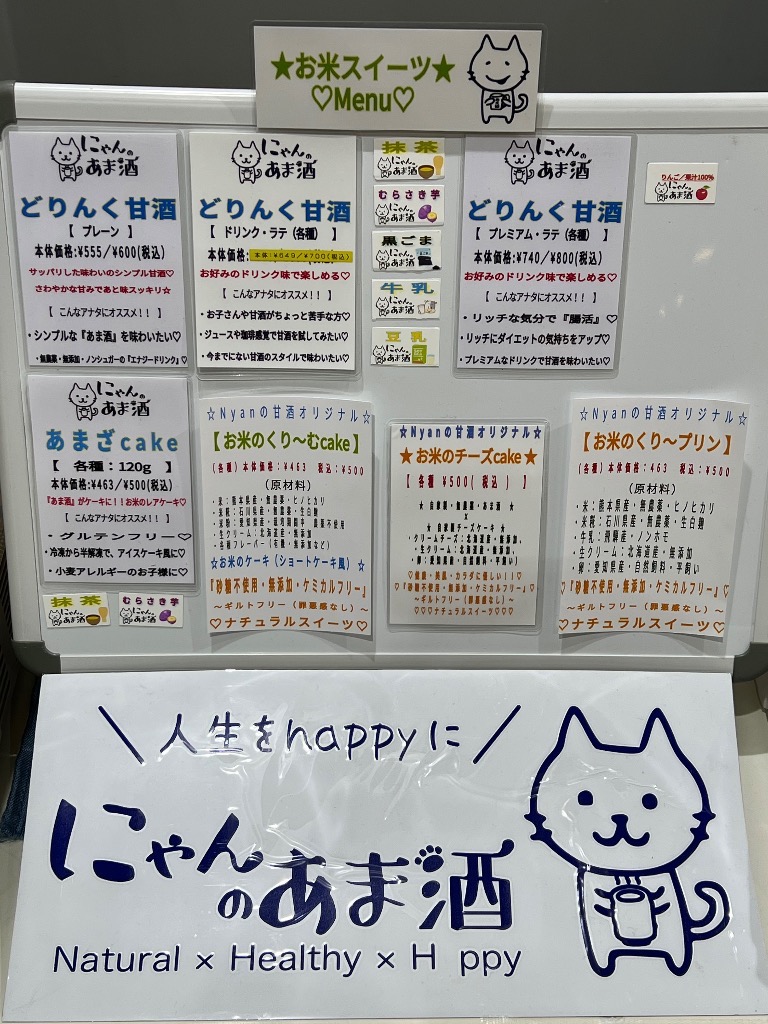 ★お米スイーツ★
♡Menu♡
にゃんの
あま酒
どりんく甘酒
【 プレーン 】
本体価格:¥555/¥600(税込)
サッパリした味わいのシンプル甘酒♡
さわやかな甘みであと味スッキリ☆
【 こんなアナタにオススメ!! 】
・シンプルな『あま酒』を味わいたい♡
・無農薬・無添加・ノンシュガーの『エナジードリンク』♡
にゃんの
あま酒
どりんく甘酒
【 ドリンク・ラテ(各種) 】
本体価格: 本体:¥649/¥700(税込)
お好みのドリンク味で楽しめる♡
【 こんなアナタにオススメ!! 】
・お子さんや甘酒がちょっと苦手な方♡
・ジュースや珈琲感覚で甘酒を試してみたい♡
・今までにない甘酒のスタイルで味わいたい♡
抹茶
にゃんの
あま酒
むらさき芋
にゃんの
あま酒
黒ごま
にゃんの
あま酒
牛乳
にゃんの
あま酒
豆乳
にゃんの
あま酒
にゃんの
あま酒
どりんく甘酒
【 プレミアム・ラテ(各種) 】
本体価格:¥740/¥800(税込)
お好みのドリンク味で楽しめる♡
【 こんなアナタにオススメ!! 】
・リッチな気分で『腸活』♡
・リッチにダイエットの気持ちをアップ♡
・プレミアムなドリンクで甘酒を味わいたい♡
りんご/果汁100%
にゃんの
あま酒
にゃんの
あま酒
あまざcake
【 各種:120g 】
本体価格:¥463/¥500(税込)
『あま酒』がケーキに!!お米のレアケーキ♡
【 こんなアナタにオススメ!! 】
・グルテンフリー♡
・冷凍から半解凍で、アイスケーキ風に♡
・小麦アレルギーのお子様に♡
抹茶
にゃんの
あま酒
むらさき芋
にゃんの
あま酒
☆Nyanの甘酒オリジナル☆
【お米のくり~むcake】
(各種)本体価格:¥463 税込:¥500
(原材料)
・米:熊本県産・無農薬・ヒノヒカリ
・米糀:石川県産・無農薬・生白麹
・生クリーム:北海道産・無添加
・各種フレーバー(有機・無添加など)
☆お米のケーキ(ショートケーキ風)☆
『砂糖不使用・無添加・ケミカルフリー』
~ギルトフリー(罪悪感なし)~
♡ナチュラルスイーツ♡
☆Nyanの甘酒オリジナル☆
★お米のチーズcake★
【 各種 ¥500(税込) 】
★ 自家製・無添加・あま酒 ★
×
★ 自家製チーズケーキ ★
・クリームチーズ:北海道産・無添加、
・生クリーム:北海道産・無添加、
・卵:愛知県産・自然飼料・平飼い
♡健康・美容・カラダに優しい!!♡
『砂糖不使用・無添加・ケミカルフリー』
~ギルトフリー(罪悪感なし)~
♡♡♡ナチュラルスイーツ♡♡♡
☆Nyanの甘酒オリジナル☆
【お米のくり~プリン】
(各種)本体価格:463 税込:¥500
(原材料)
・米:熊本県産・無農薬・ヒノヒカリ
・米糀:石川県産・無農薬・生白麹
・牛乳:飛騨産・ノンホモ
・生クリーム:北海道産・無添加
・卵:愛知県産・自然飼料・平飼い
『砂糖不使用・無添加・ケミカルフリー』
~ギルトフリー(罪悪感なし)~
♡ナチュラルスイーツ♡
\人生をhappyに/
にゃん
のあま酒
Natural × Healthy × H ppy